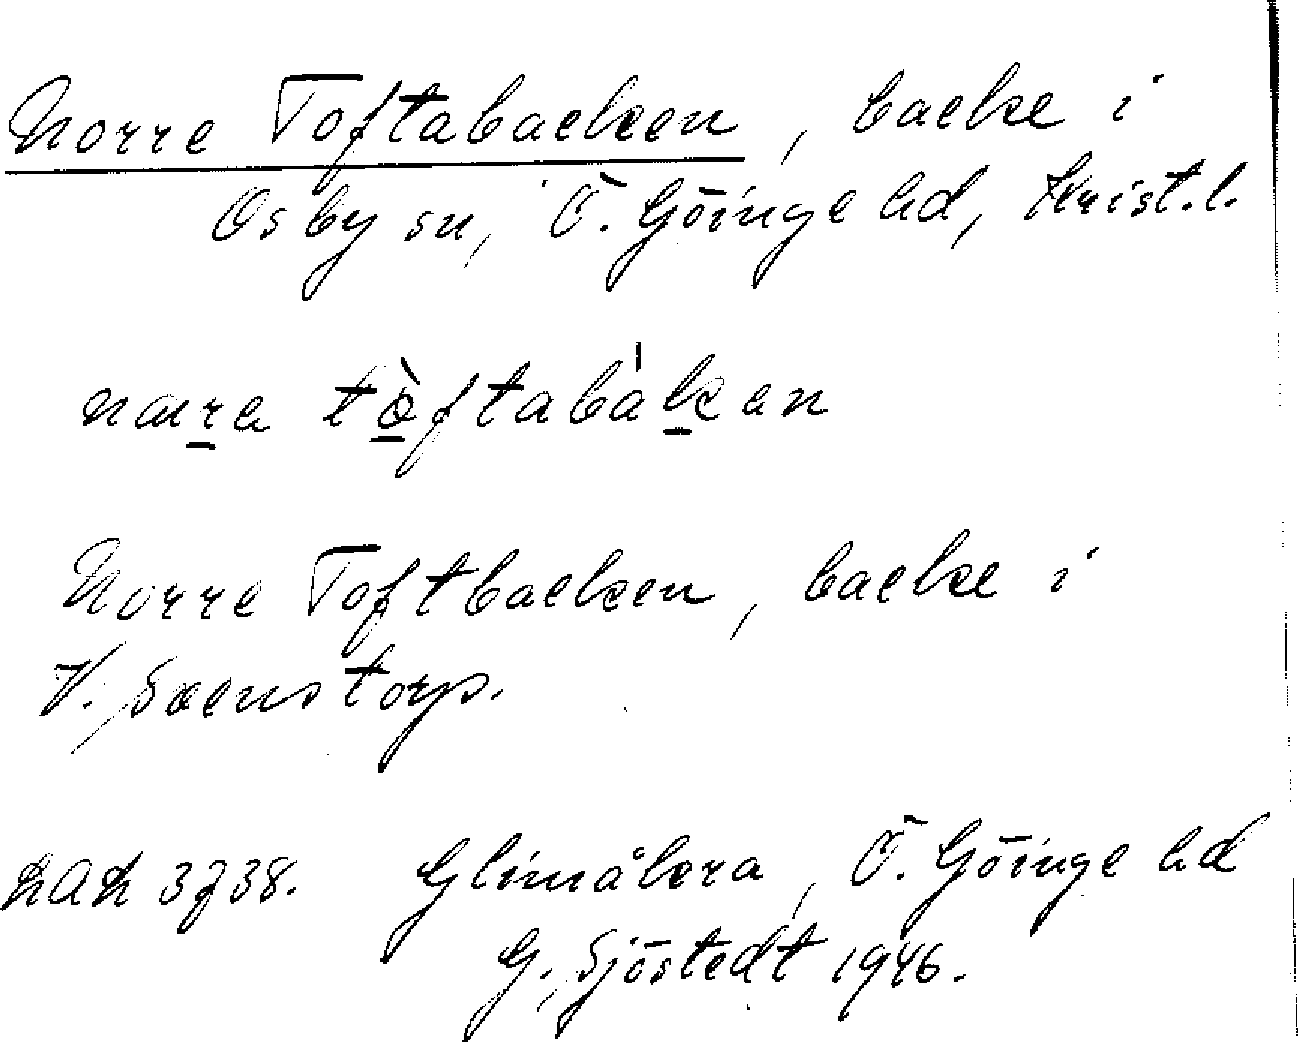 Norre Toftabacken, backe i
Osby sn, Ö. Göinge hd, Krist.l.
næra tòftabàkan
Norre Toftbacken, backe i
V. Svenstorp.
LAL 3738. Glimåkra, Ö. Göinge hd
G. Sjöstedt 1946.